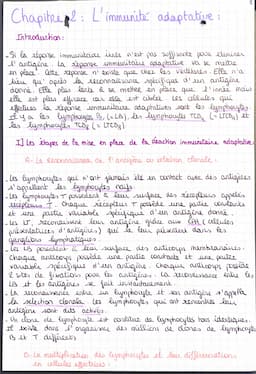 Chapitre 2: L'immunité adaptative:
Introduction:
- Si la réponse immunitaire innée n'est pas suffisante pour éliminer
l'antigène. La réponse immunitaire adaptative va se mettre
en place. Cette réponse n'existe que chez les vertébrés. Elle n'a
lieu qu'après la reconnaissance spécifique d'un antigène
donné. Elle plus lente à se mettre en place que l'innée mais
elle est plus efficace car elle est ciblée. Les cellules qui
effectuent la réponse immunitaire adaptative sont les lymphocytes.
Il y a les lymphocytes B (= LB), les lymphocytes TCD4 (= LTCD4) et
les lymphocytes TCD8 (= LTCD8)
I] Les étapes de la mise en place de la réaction immunitaire adaptative
A- La reconnaissance de l'antigène ou sélection clonale.
- Les lymphocytes qui n'ont jamais été en contact avec des antigènes
s'appellent les lymphocytes naïfs.
- Les lymphocytes T possèdent à leur surface des récepteurs appelés
récepteurs T. Chaque récepteur T possède une partie constante
et une partie variable spécifique d'un antigène donné.
- Les LT reconnaissent leur antigène grâce aux CPA (cellules
présentatrices d'antigènes) qui le leur présentent dans les
ganglions lymphatiques.
- Les LB possèdent à leur surface des anticorps membranaires.
Chaque anticorps possède une partie constante et une partie
variable spécifique d'un antigène. Chaque anticorps possède
2 sites de fixation pour les antigènes. La reconnaissance entre les
LB et les antigènes se fait directement.
- La reconnaissance entre un lymphocyte et son antigène s'appelle
la sélection clonale. Les lymphocytes qui ont rencontré leur
antigène sont dits activés.
- Un clone de lymphocyte est constitué de lymphocytes tous identiques.
Il existe dans l'organisme des millions de clones de lymphocytes
B et T différents
B- La multiplication des lymphocytes et leur différenciation
en cellules effectrices